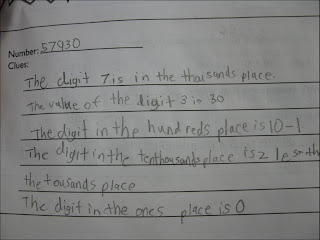 Number: 57930
Clues:
The digit 7 is in the thaisands place.
The value of the digit 3 is 30
The digit in the hundreds place is 10-1
The digit in the tenthousands place is 2 less th
the tousands place
The digit in the ones place is 0